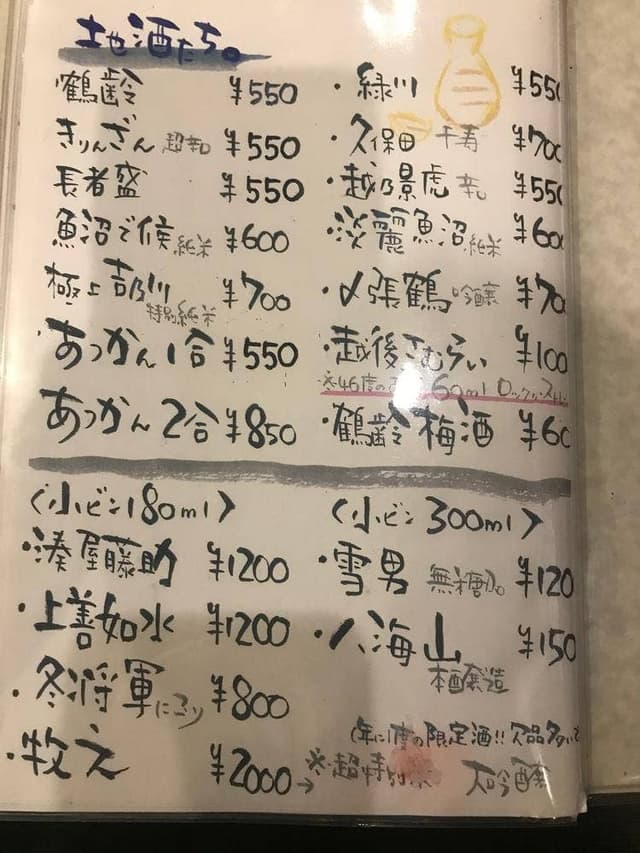 地酒たち。
鶴齢 ¥550
きりんざん 超辛口 ¥550
長者盛 ¥550
魚沼で候 純米 ¥600
極上吉乃川 特別純米 ¥700
・あつかん1合 ¥550
あつかん2合 ¥850
・緑川 ¥550
・久保田 千寿 ¥700
・越乃景虎 辛口 ¥550
・淡麗魚沼 純米 ¥600
・〆張鶴 吟醸 ¥70
・越後さむらい ¥100
※46度の 60ml ロック
・鶴齢梅酒 ¥60
〈小ビン180ml〉
・湊屋藤助 ¥1200
・上善如水 ¥1200
・冬将軍 にごり ¥800
・牧之 ¥2000→
〈小ビン 300ml〉
・雪男 無糖 ¥120
・八海山 本醸造 ¥150
(年に1度の限定酒!!欠品多い
※超特別 大吟醸